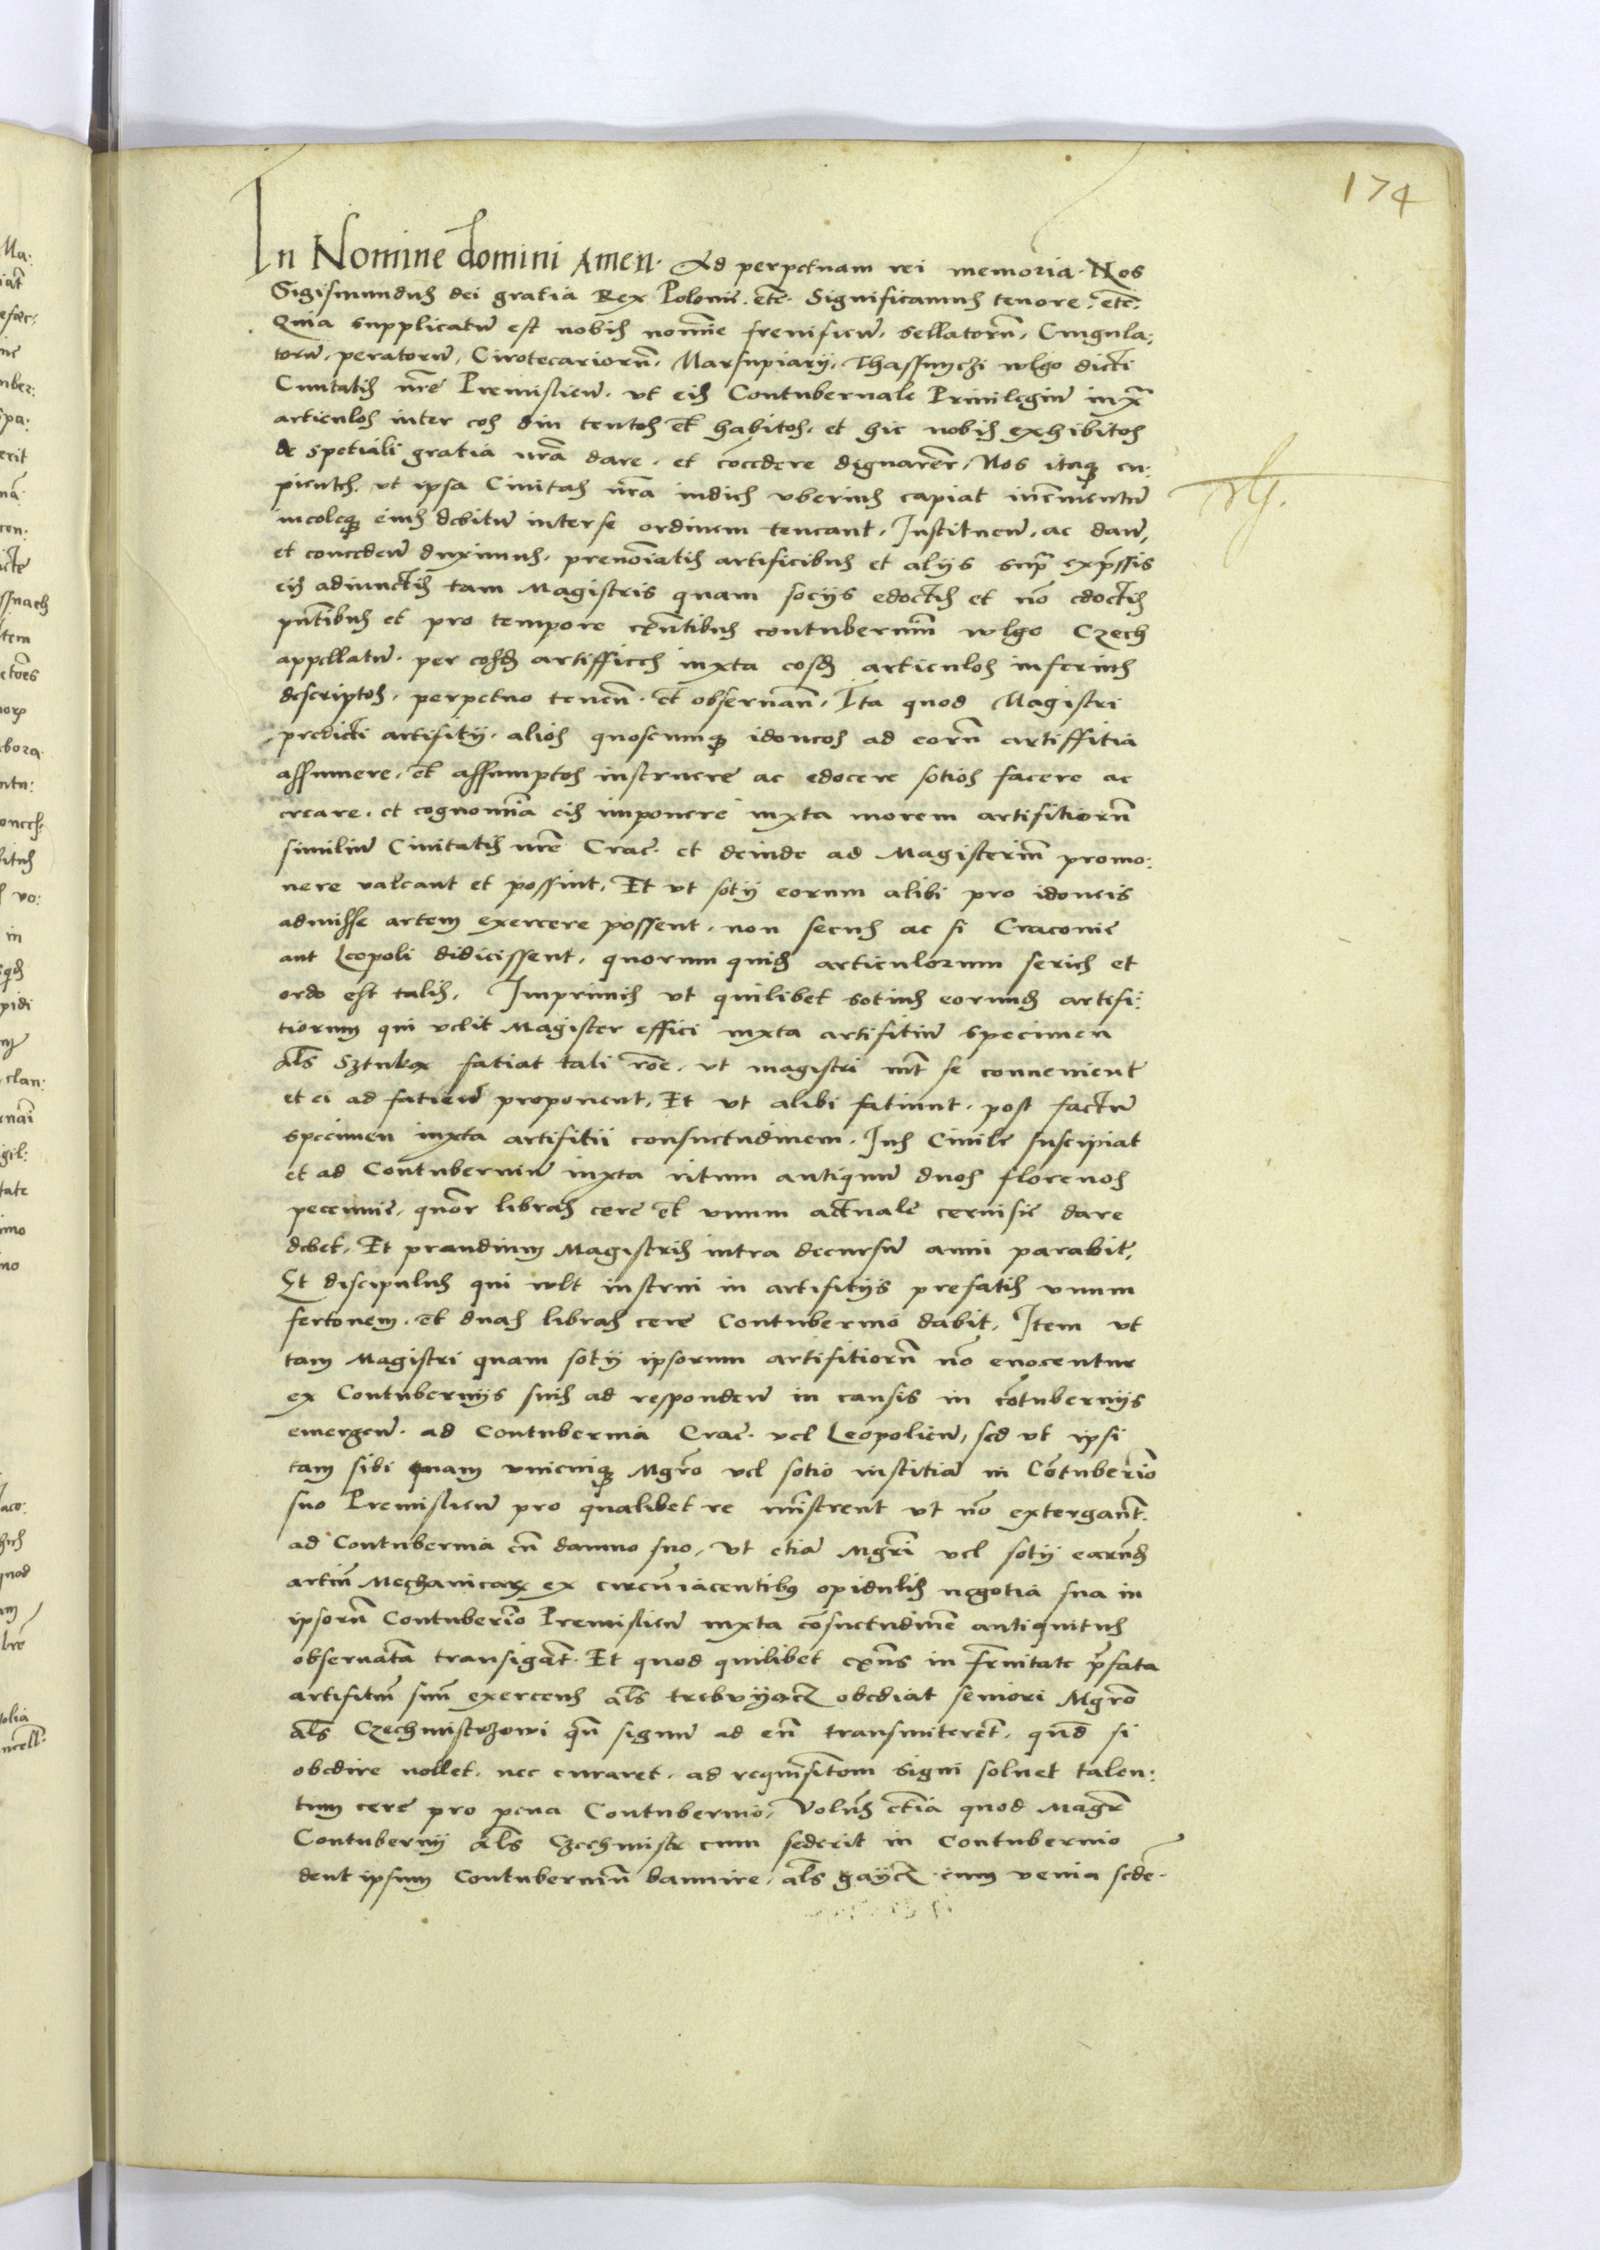 174
In Nomine domini Amen. Ad perpetuam rei memoriā. Nos
Sigismundus dei gratia Rex Polonie. etc. Significamus tenore. etc.
Quia supplicatū est nobis nomīe frenificū, sellatorū, Cingula:
torū, peratorū, Cirotecariorū, Marsupiarij, Thassnychi wlgo dicti
Civitatis nr̄e Premislien̄. ut eis Contubernale Privilegiū iuxta
articulos inter eos diu tentos et habitos, et hic nobis exhibitos
de spetiali gratia nr̄a dare, et cōcedere dignarem̄r, Nos itaq cu:
pientes, ut ipsa Civitas nr̄a indies uberius capiat incrementū
incoleq eius debitū inter se ordinem teneant, Instituen̄. ac dan̄,
et conceden̄ duximus, prenoīatis artificibus et alijs supra expr̄ssis
eis adiunctis tam Magistris quam socijs edoctis et nō edoctis
pn̄tibus et pro tempore exn̄tibus contubernīum wlgo Czech
appellatū. per eosd artiffices iuxta eosd articulos inferius
descriptos, perpetuo tenen̄. et observan̄. Ita quod Magistri
predicti artifitij, alios quoscumq idoneos ad eorū artiffitia
assumere, et assumptos instruere ac edocere sotios facere ac
creare, et cognomīa eis imponere iuxta morem artifitiorū
similiū Civitatis nr̄e Crac̄. et deinde ad Magisteriū promo:
vere valeant et possint, Et ut sotij eorum alibi pro idoneis
admisse artem exercere possent, non secus ac si Cracovie
aut Leopoli didicissent, quorum quid articulorum series et
ordo est talis, Imprimis ut quilibet sotius eorund artifi:
tiorum qui velit Magister effici iuxta artifitiū specimen
als Sztuka fatiat tali rōe, ut magistri int̄ se convenient
et ei ad fatien̄ proponent, Et ut alibi fatiunt, post factū
specimen iuxta artifitii consuetudinem. Ius Civile suscipiat
et ad Contuberniū iuxta ritum antiquū duos florenos
peccunie, quor libras cere et unum actuale cervisie dare
debet, Et prandium Magistris intra decursū anni parabit,
Et discipulus qui wlt instrui in artifitijs prefatis unum
fertonem, et duas libras cere Contubernio dabit, Item ut
tam Magistri quam sotij ipsorum artifitiorū nō evocentur
ex Contubernijs suis ad responden̄ in causis in cōtubernijs
emergen̄. ad Contubernia Crac̄. vel Leopolien̄, sed ut ipsi
tam sibi quam unicuiq Mgr̄o vel sotio iustitiā in Cōtubernīo
suo Premislien̄ pro qualibet re mīstrent ut nō
ad Contubernia cū damno suo, ut etiā Mgr̄i vel sotij earūd
artiū Mechanicar ex circūiacentibus opidulis negotia sua in
ipsorū Contubernīo Premislien̄ iuxta cōsuetudinē antiquitus
observatam transigāt. Et quod quilibet exn̄s in fr̄nitate pr̄fata
artifitiū suū exercens als obediat seniori Mgr̄o
als Czechmistrzowi qn̄ signū ad eū transmiterēt, quod si
obedire nollet, nec curaret, ad requisitiom signi solvet talen:
tum cere pro pena Contubernio, Volum̄s etiā quod Magr̄
Contubernij als Czechmistr cum sederit in Contubernio
dent ipsum Contuberniū bannire, als gaycz cum venia sede.